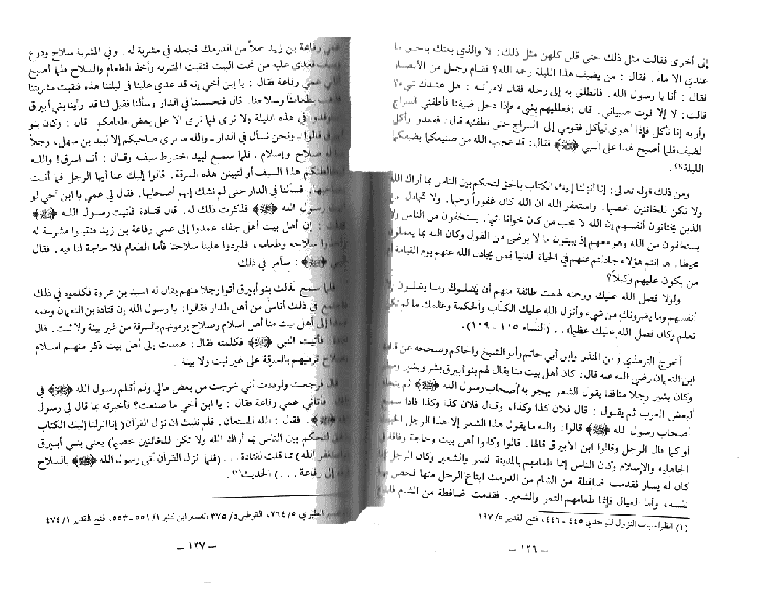 إلى أخرى فقالت مثل ذلك حتى قلن كلهن مثل ذلك: لا والذي بعثك بالحق ما
عندي إلا ماء. فقال: من يضيف هذا الليلة رحمه الله؟ فقام رجل من الأنصار
فقال: أنا يا رسول الله. فانطلق به إلى رحله فقال لامرأته: هل عندك شيء؟
قالت: لا إلا قوت صبياني. قال: فعلليهم بشيء فإذا دخل ضيفنا فأطفئي السراج
وأريه أنا نأكل فإذا أهوى ليأكل فقومي إلى السراج حتى تطفئيه قال: فقعدوا وأكل
الضيف فلما أصبح غدا على النبي ﷺ فقال: قد عجب الله من صنيعكما بضيفكما
الليلة
ومن ذلك قوله تعالى: إنا أنزلنا إليك الكتاب بالحق لتحكم بين الناس بما أراك الله
ولا تكن للخائنين خصيما. واستغفر الله إن الله كان غفوراً رحيما. ولا تجادل عن
الذين يختانون أنفسهم إن الله لا يحب من كان خواناً أثيما. يستخفون من الناس ولا
يستخفون من الله وهو معهم إذ يبيتون ما لا يرضى من القول وكان الله بما يعملون
محيطا. ها أنتم هؤلاء جادلتم عنهم في الحياة الدنيا فمن يجادل الله عنهم يوم القيامة أم
من يكون عليهم وكيلاً؟
ولولا فضل الله عليك ورحمته لهمت طائفة منهم أن يضلوك وما يضلون إلا
أنفسهم وما يضرونك من شيء وأنزل الله عليك الكتاب والحكمة وعلمك ما لم تكن
تعلم وكان فضل الله عليك عظيما.. (النساء ١٠٥ - ١٠٩).
أخرج الترمذي وابن المنذر وابن أبي حاتم وأبو الشيخ والحاكم وصححه عن قتادة
ابن النعمان رضي الله عنه قال: كان أهل بيت منا يقال لهم بنو أبيرق بشر وبشير
وكان بشير رجلاً منافقا يقول الشعر يهجو به أصحاب رسول الله ﷺ ثم
لبعض العرب ثم يقول: قال فلان كذا وكذا، وقال فلان كذا وكذا فإذا سمع
أصحاب رسول الله ﷺ قالوا: والله ما يقول هذا الشعر إلا هذا الرجل الخبيث
أو كما قال الرجل وقالوا ابن الأبيرق قالها. قالوا وكانوا أهل بيت وحاجة وفاقة
الجاهلية والإسلام وكان الناس إنما طعامهم بالمدينة التمر والشعير وكان الرجل إذا
كان له يسار فقدمت ضافطة من الشام من الدرمك ابتاع الرجل منها فخص بها
نفسه، وأما العيال فإنما طعامهم التمر والشعير. فقدمت ضافطة من الشام
(١) أسباب النزول للواحدي ٤٤٥ - ٤٤٦، فتح القدير ١٩٧/٥
- ١٢٦ -
عمي رفاعة بن زيد حملاً من الدرمك فجعله في مشربة له. وفي المشربة سلاح ودرع
وسيف فعدي عليه من تحت البيت فنقبت المشربة وأخذ الطعام والسلاح فلما أصبح
أتاني عمي رفاعة فقال: يا ابن أخي إنه قد عدي علينا في ليلتنا هذه فنقبت مشربتنا
فذهب بطعامنا وسلاحنا. قال فتحسسنا في الدار وسألنا فقيل لنا قد رأينا بني أبيرق
استوقدوا في هذه الليلة ولا نرى فيما نرى إلا على بعض طعامكم. قال: وكان بنو
أبيرق قالوا - ونحن نسأل في الدار - والله ما نرى صاحبكم إلا لبيد بن سهل، رجلاً
منا له صلاح وإسلام. فلما سمع لبيد اخترط سيفه وقال: أنا أسرق! والله
ليخالطنكم هذا السيف أو لتبينن هذه السرقة. قالوا إليك عنا أيها الرجل فما أنت
بصاحبها. فسألنا في الدار حتى لم نشك إنهم أصحابها. فقال لي عمي يا ابن أخي لو
أتيت رسول الله ﷺ فذكرت ذلك له. قال قتادة فأتيت رسول الله ﷺ
فقلت: إن أهل بيت أهل جفاء عمدوا إلى عمي رفاعة بن زيد فنقبوا مشربة له
وأخذوا سلاحه وطعامه، فليردوا علينا سلاحنا فأما الطعام فلا حاجة لنا فيه. فقال
النبي ﷺ: سآمر في ذلك
فلما سمع بذلك بنو أبيرق أتوا رجلا منهم يقال له أسيد بن عروة فكلموه في ذلك
فاجتمع في ذلك أناس من أهل الدار فقالوا: يا رسول الله إن قتادة بن النعمان وعمه
عمدا إلى أهل بيت منا أهل إسلام وصلاح يرمونهم بالسرقة من غير بينة ولا ثبت. قال
قتادة فأتيت النبي ﷺ فكلمته فقال: عمدت إلى أهل بيت ذكر منهم إسلام
وصلاح ترميهم بالسرقة على غير ثبت ولا بينة
قال فرجعت ولوددت أني خرجت من بعض مالي ولم أكلم رسول الله ﷺ في
ذلك فأتاني عمي رفاعة فقال: يا ابن أخي ما صنعت؟ فأخبرته بما قال لي رسول
الله ﷺ. فقال: الله المستعان. فلم نلبث أن نزل القرآن (إنا أنزلنا إليك الكتاب
بالحق لتحكم بين الناس بما أراك الله ولا تكن للخائنين خصيما) يعني بني أبيرق
(واستغفر الله) مما قلت لقتادة... (فلما نزل القرآن أتى رسول الله ﷺ بالسلاح
فرده إلى رفاعة...) الحديث
تفسير الطبري ٢٦٤/٥، القرطبي ٣٧٥/٥، تفسير ابن كثير ٥٥١/١ - ٥٥٣، فتح القدير ٤٧٤/١
- ١٢٧ -